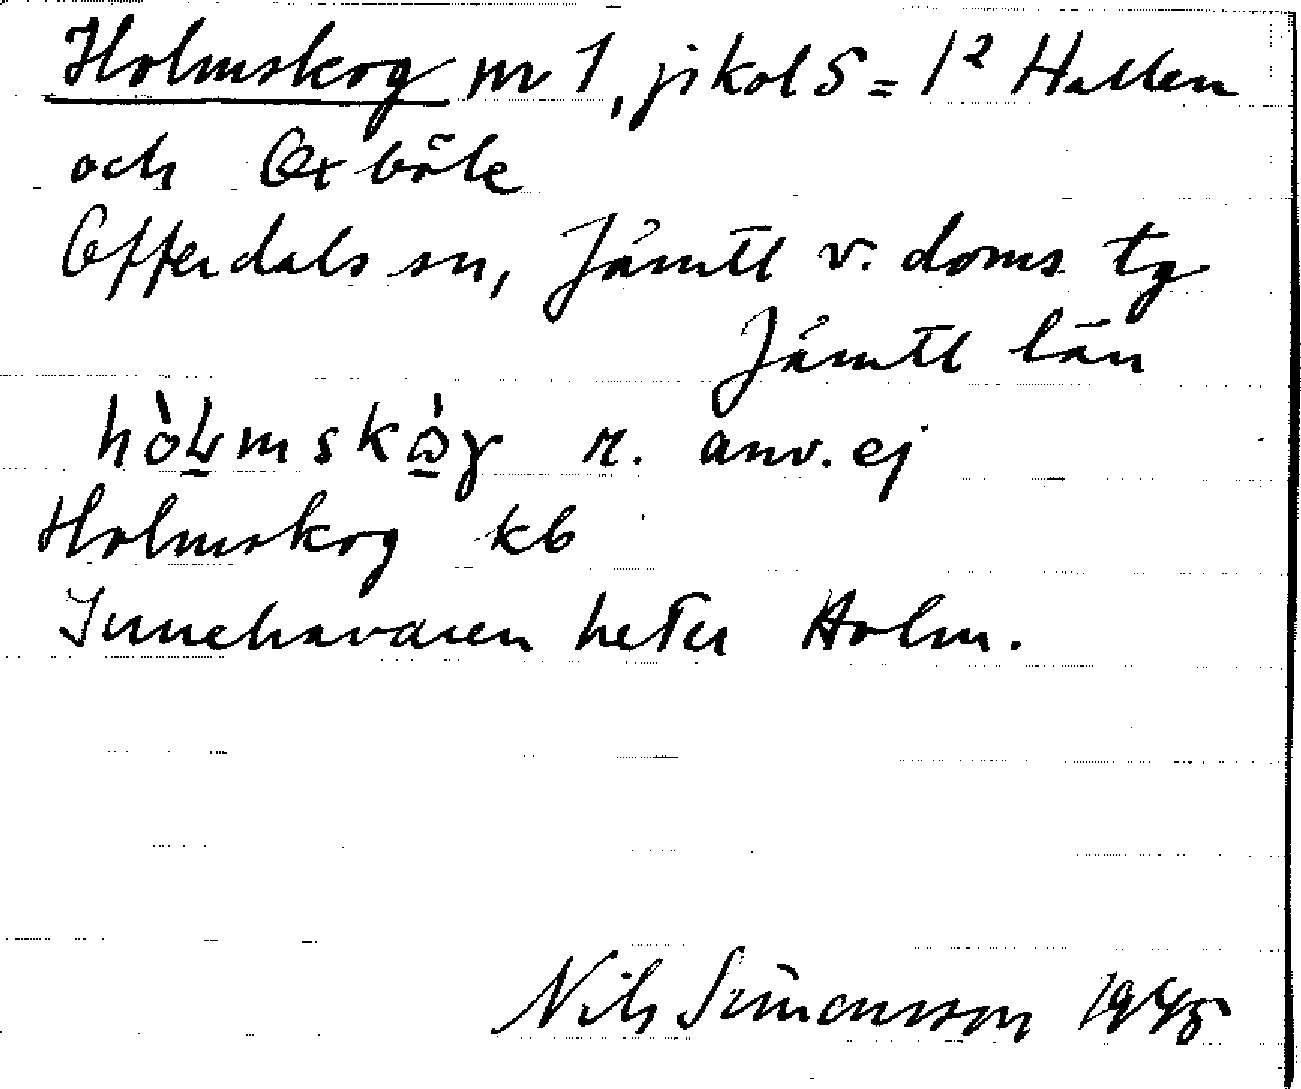 Holmskog nr 1, jikol S = 1² Hallen
och Oxböle
Offerdals sn, Jämtl v. doms tg
Jämtl län
r. anv. ej
Holmskog kb
Innehavaren heter Holm.
Nils Simonsson 1945